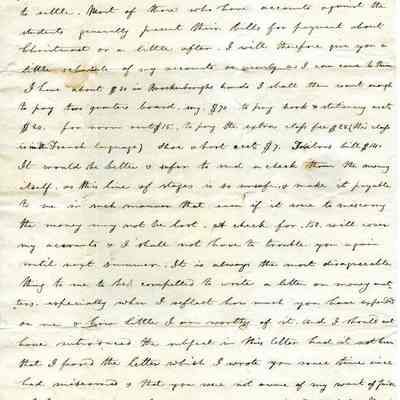 to settle. Most of those who have accounts against the
students generally present their bills for payment about
Christmast or a little after. I will therefore give you a
little schedule of my accounts as nearly as I can come to them
I have about $20 in hands I shall then want enough
to pay two quarters board, say, $70. to pay book & stationery acct
$20. for room rent $15. to pay the extra class fee $24 (this class
is in the French language) shoe & boot acct $7. bill $14.
It would be better & safer to send a check than the money
itself, as this line of stages is so unsafe, & make it payable
to me in such manner that even if it were to miscarry
the money may not be lost. A check for 150. will cover
my accounts & I shall not have to trouble you again
until next Summer. It is always the most disagreeable
thing to me to be compelled to write a letter on money mat
ters. especially when I reflect how much you have expended
on me & how little I am worthy of it. And I should not
have introduced the subject in this letter had it not been
that I feared the letter which I wrote you some time since
had miscarried & that you were not aware of my want of